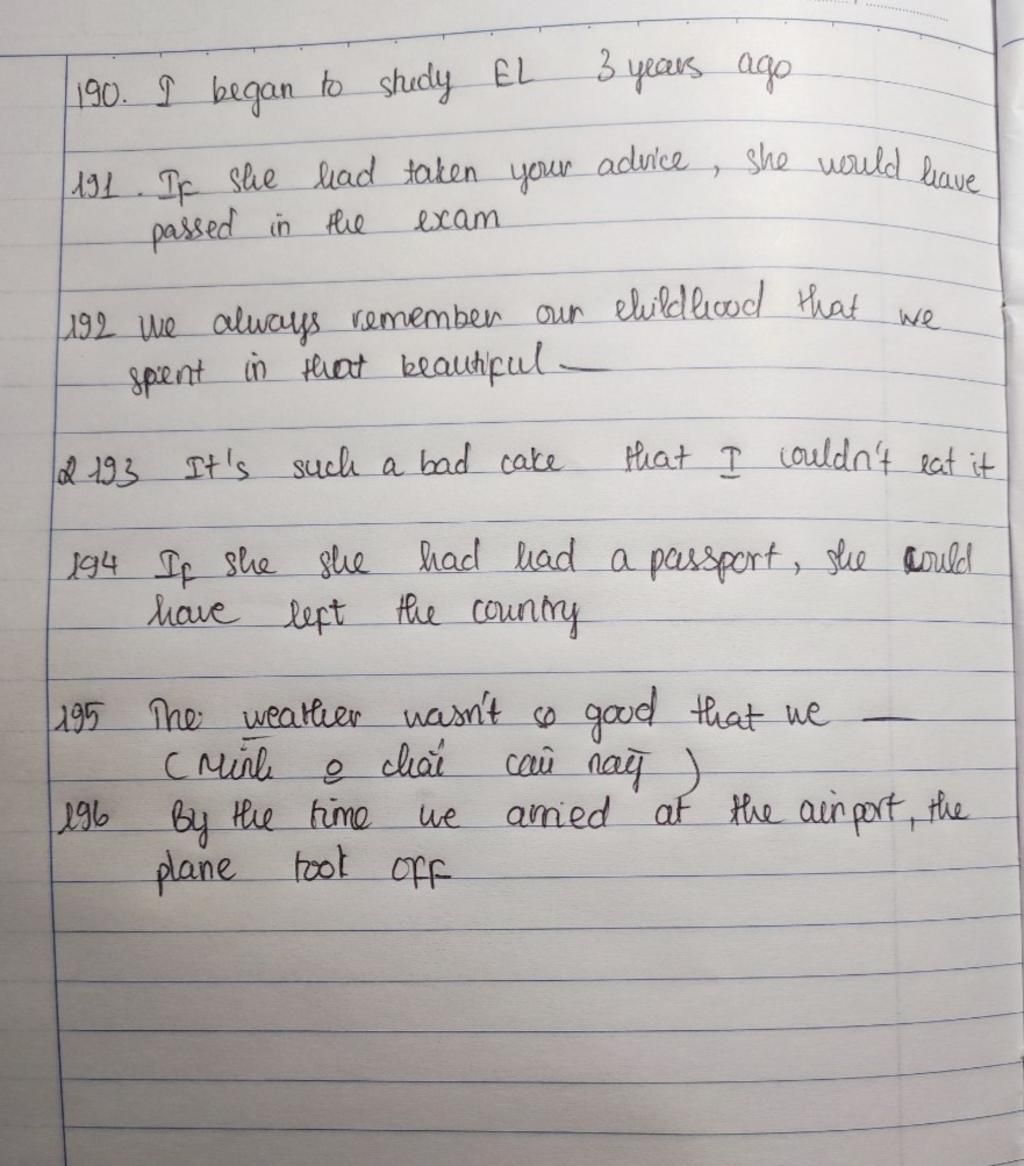 190. I began to study EL 3 years ago
191. If she had taken your advice, she would have
passed in the exam
192 We always remember our childhood that we
spent in that beautiful —
193 It's such a bad cake that I couldn't eat it
194 If she she had had a passport, she could
have left the country
195 The weather wasn't so good that we —
( Mình chắc câu này )
196 By the time we arried at the airport, the
plane took off